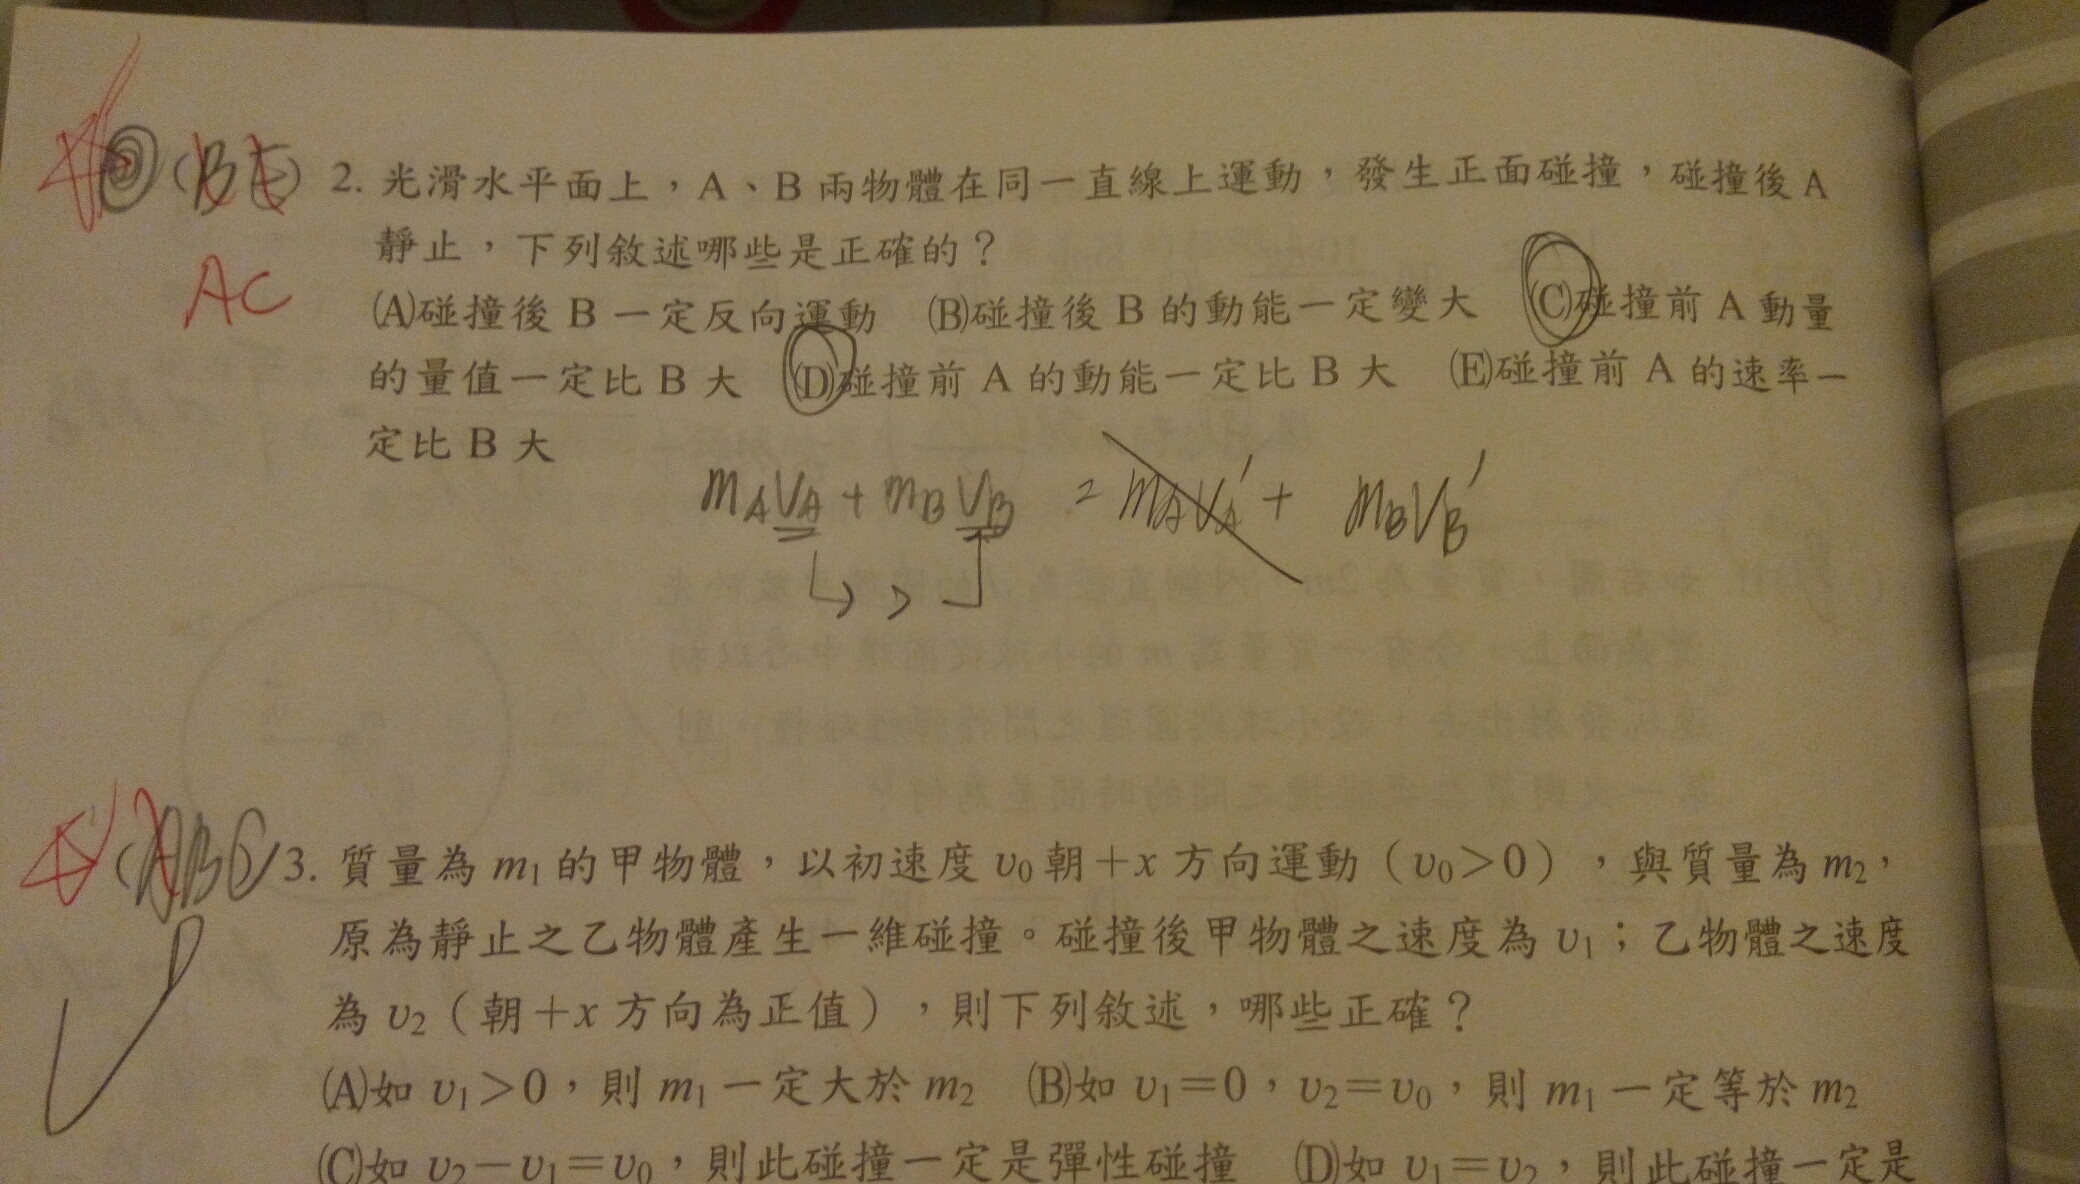 (BE) 2. 光滑水平面上，A、B 兩物體在同一直線上運動，發生正面碰撞，碰撞後 A
靜止，下列敘述哪些是正確的？
AC
(A)碰撞後 B 一定反向運動 (B)碰撞後 B 的動能一定變大 (C)碰撞前 A 動量
的量值一定比 B 大 (D)碰撞前 A 的動能一定比 B 大 (E)碰撞前 A 的速率一
定比 B 大
mAvA + mBvB = mAvA' + mBvB'
(ABC) 3. 質量為 m₁ 的甲物體，以初速度 υ₀ 朝＋x 方向運動（υ₀＞0），與質量為 m₂，
原為靜止之乙物體產生一維碰撞。碰撞後甲物體之速度為 υ₁；乙物體之速度
為 υ₂（朝＋x 方向為正值），則下列敘述，哪些正確？
(A)如 υ₁＞0，則 m₁ 一定大於 m₂ (B)如 υ₁＝0，υ₂＝υ₀，則 m₁ 一定等於 m₂
(C)如 υ₂－υ₁＝υ₀，則此碰撞一定是彈性碰撞 (D)如 υ₁＝υ₂，則此碰撞一定是